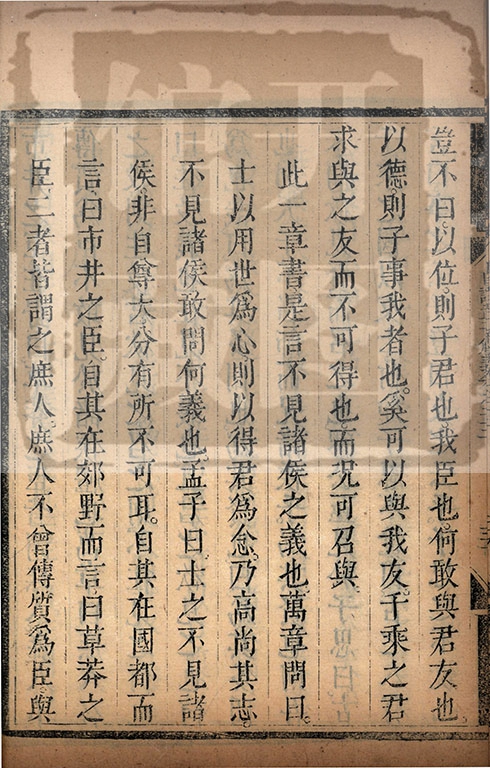 豈不曰以位則子君也我臣也何敢與君友也
以德則子事我者也奚可以與我友千乘之君
求與之友而不可得也而況可召與
此一章書是言不見諸侯之義也萬章問曰
士以用世爲心則以得君爲念乃高尚其志
不見諸侯敢問何義也孟子曰士之不見諸
侯非自尊大分有所不可耳自其在國都而
言曰市井之臣自其在郊野而言曰草莽之
臣二者皆謂之庶人庶人不曾傳質爲臣與